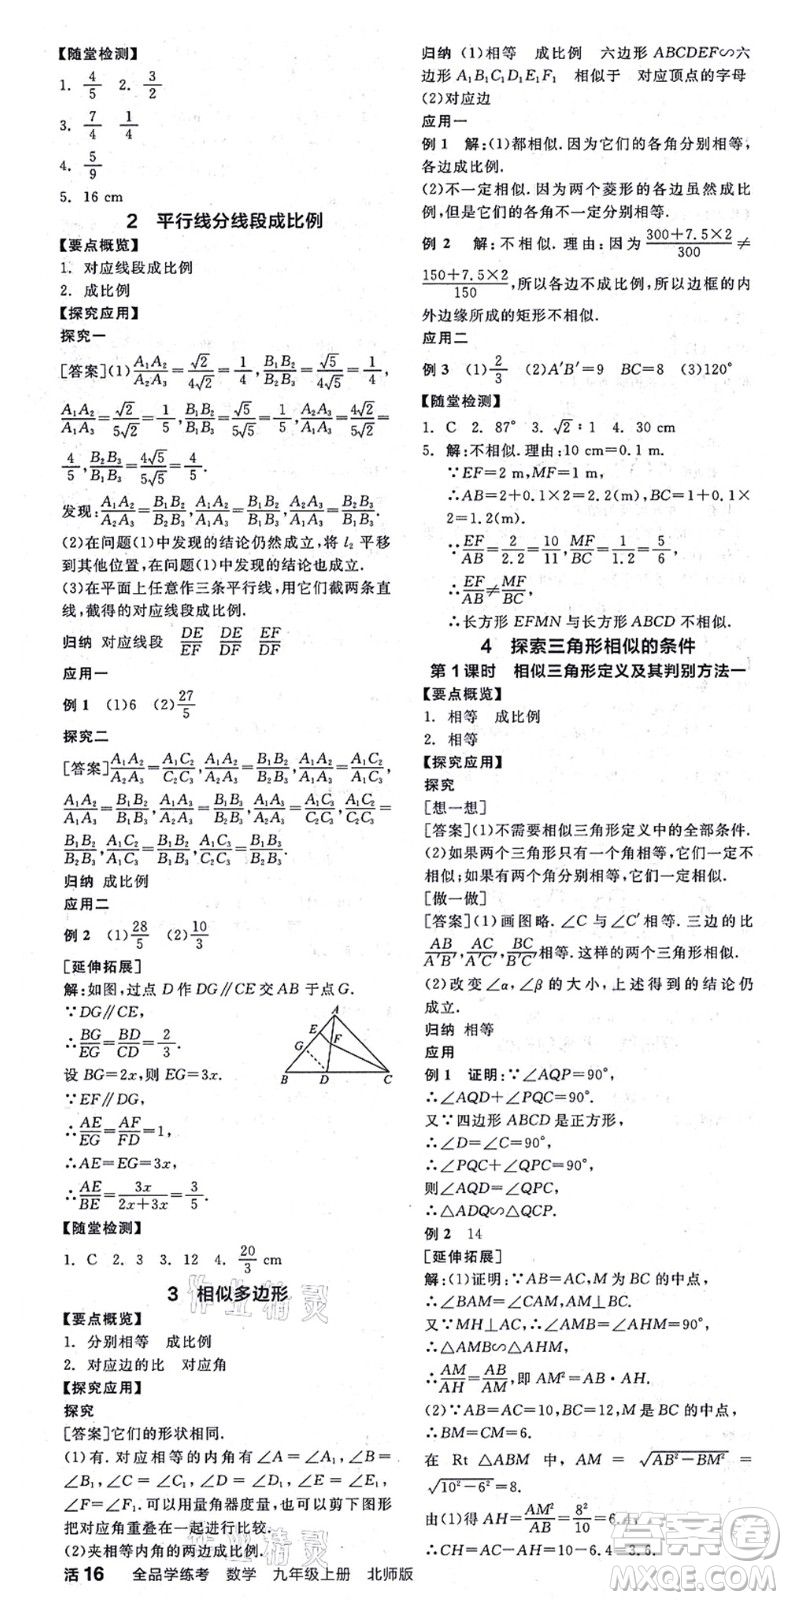 【随堂检测】
1. 4/5 2. 3/2
3. 7/4 1/4
4. 5/9
5. 16 cm
2 平行线分线段成比例
【要点概览】
1. 对应线段成比例
2. 成比例
【探究应用】
探究一
[答案](1)A₁A₂/A₂A₃=√2/4√2=1/4,B₁B₂/B₂B₃=√5/4√5=1/4,
A₁A₂/A₁A₃=√2/5√2=1/5,B₁B₂/B₁B₃=√5/5√5=1/5,A₂A₃/A₁A₃=4√2/5√2=
4/5,B₂B₃/B₁B₃=4√5/5√5=4/5.
发现:A₁A₂/A₂A₃=B₁B₂/B₂B₃,A₁A₂/A₁A₃=B₁B₂/B₁B₃,A₂A₃/A₁A₃=B₂B₃/B₁B₃.
(2)在问题(1)中发现的结论仍然成立,将 l₂ 平移
到其他位置,在问题(1)中发现的结论也成立.
(3)在平面上任意作三条平行线,用它们截两条直
线,截得的对应线段成比例.
归纳 对应线段 DE/EF DE/DF EF/DF
应用一
例 1 (1)6 (2)27/5
探究二
[答案]A₁A₂/A₂A₃=A₁C₂/C₂C₃,A₁A₂/A₂A₃=B₁B₂/B₂B₃,A₁A₂/A₁A₃=A₁C₂/A₁C₃,
A₁A₂/A₁A₃=B₁B₂/B₁B₃,A₂A₃/A₁A₃=C₂C₃/A₁C₃,A₂A₃/A₁A₃=B₂B₃/B₁B₃,A₁C₂/C₂C₃=
B₁B₂/B₂B₃,A₁C₂/A₁C₃=B₁B₂/B₁B₃,C₂C₃/A₁C₃=B₂B₃/B₁B₃.
归纳 成比例
应用二
例 2 (1)28/5 (2)10/3
[延伸拓展]
解:如图,过点 D 作 DG∥CE 交 AB 于点 G.
∵DG∥CE,
∴BG/EG=BD/CD=2/3.
设 BG=2x,则 EG=3x.
∵EF∥DG,
∴AE/EG=AF/FD=1,
∴AE=EG=3x,
∴AE/BE=3x/2x+3x=3/5.
A
E
G
F
B
D
C
【随堂检测】
1. C 2. 3 3. 12 4. 20/3 cm
3 相似多边形
【要点概览】
1. 分别相等 成比例
2. 对应边的比 对应角
【探究应用】
探究
[答案]它们的形状相同.
(1)有. 对应相等的内角有∠A=∠A₁,∠B=
∠B₁,∠C=∠C₁,∠D=∠D₁,∠E=∠E₁,
∠F=∠F₁. 可以用量角器度量,也可以剪下图形
把对应角重叠在一起进行比较.
(2)夹相等内角的两边成比例.
活 16 全品学练考 数学 九年级上册 北师版
归纳 (1)相等 成比例 六边形 ABCDEF∽六
边形 A₁B₁C₁D₁E₁F₁ 相似于 对应顶点的字母
(2)对应边
应用一
例 1 解:(1)都相似. 因为它们的各角分别相等,
各边成比例.
(2)不一定相似. 因为两个菱形的各边虽然成比
例,但它们的各角不一定分别相等.
例 2 解:不相似. 理由:因为300+7.5×2/300≠
150+7.5×2/150,所以各边不成比例,所以边框的内
外边缘所成的矩形不相似.
应用二
例 3 (1)2/3 (2)A′B′=9 BC=8 (3)120°
【随堂检测】
1. C 2. 87° 3. √2∶1 4. 30 cm
5. 解:不相似. 理由:10 cm=0.1 m.
∵EF=2 m,MF=1 m,
∴AB=2+0.1×2=2.2(m),BC=1+0.1×2
=1.2(m).
∵EF/AB=2/2.2=10/11,MF/BC=1/1.2=5/6,
∴EF/AB≠MF/BC,
∴长方形 EFMN 与长方形 ABCD 不相似.
4 探索三角形相似的条件
第 1 课时 相似三角形定义及其判别方法一
【要点概览】
1. 相等 成比例
2. 相等
【探究应用】
探究
[想一想]
[答案](1)不需要相似三角形定义中的全部条件.
(2)如果两个三角形只有一个角相等,它们不一定
相似;如果两个角分别相等,它们一定相似.
[做一做]
[答案](1)画图略. ∠C与∠C′相等. 三边的比
AB/A′B′,AC/A′C′,BC/B′C′相等. 这样的两个三角形相似.
(2)改变∠α,∠β的大小,上述得到的结论仍
成立.
归纳 相等
应用
例 1 证明:∵∠AQP=90°,
∴∠AQD+∠PQC=90°.
又∵四边形 ABCD 是正方形,
∴∠D=∠C=90°,
∴∠AQD+∠QAD=90°,
则∠QAD=∠PQC,
∴△ADQ∽△QCP.
例 2 14
[延伸拓展]
解:(1)证明:∵AB=AC,M 为 BC 的中点,
∴∠BAM=∠CAM,AM⊥BC.
又∵MH⊥AC,∴∠AMB=∠AHM=90°,
∴△ABM∽△AMH,
∴AM/AH=AB/AM,即 AM²=AB·AH.
(2)∵AB=AC=10,BC=12,M 是 BC 的中点,
∴BM=CM=6.
在 Rt △ABM 中,AM=√AB²−BM²=
√10²−6²=8.
由(1)得 AH=AM²/AB=8²/10=6.4,
∴CH=10−6.4=3.6.
作业精灵
作业精灵
答案圈
MXQE.COM